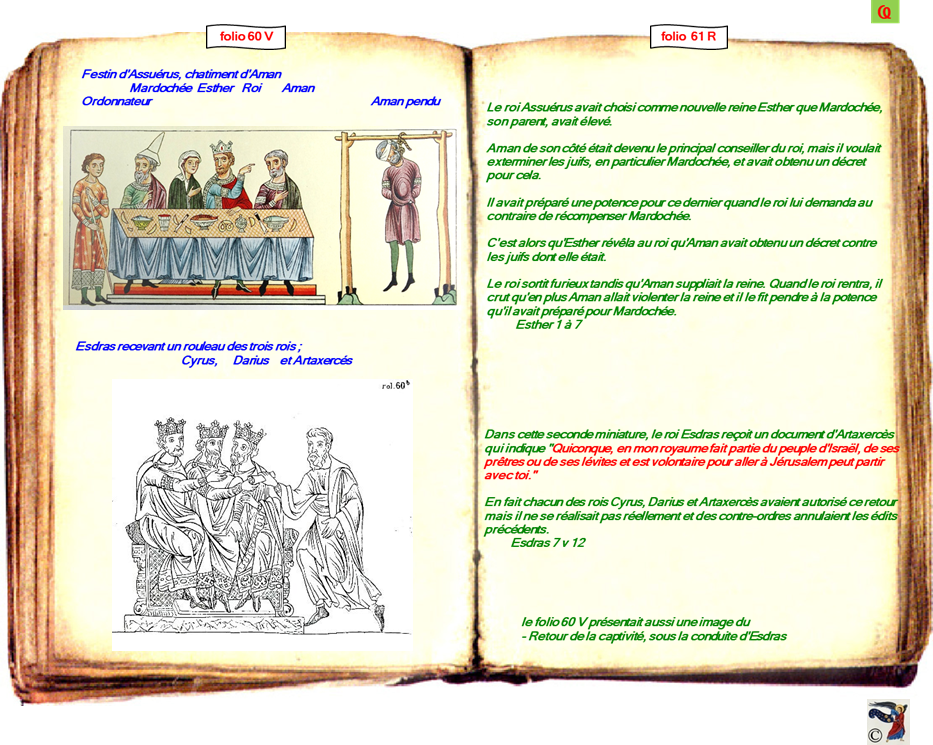 folio 60 V
folio 61 R
Festin d'Assuérus, chatiment d'Aman
Mardochée Esther Roi Aman
Ordonnateur Aman pendu
Esdras recevant un rouleau des trois rois ;
Cyrus, Darius et Artaxercés
rol.60b
Le roi Assuérus avait choisi comme nouvelle reine Esther que Mardochée,
son parent, avait élevé.
Aman de son côté était devenu le principal conseiller du roi, mais il voulait
exterminer les juifs, en particulier Mardochée, et avait obtenu un décret
pour cela.
Il avait préparé une potence pour ce dernier quand le roi lui demanda au
contraire de récompenser Mardochée.
C'est alors qu'Esther révêla au roi qu'Aman avait obtenu un décret contre
les juifs dont elle était.
Le roi sortit furieux tandis qu'Aman suppliait la reine. Quand le roi rentra, il
crut qu'en plus Aman allait violenter la reine et il le fit pendre à la potence
qu'il avait préparé pour Mardochée.
Esther 1 à 7
Dans cette seconde miniature, le roi Esdras reçoit un document d'Artaxercès
qui indique "Quiconque, en mon royaume fait partie du peuple d'Israël, de ses
prêtres ou de ses lévites et est volontaire pour aller à Jérusalem peut partir
avec toi."
En fait chacun des rois Cyrus, Darius et Artaxercès avaient autorisé ce retour
mais il ne se réalisait pas réellement et des contre-ordres annulaient les édits
précédents.
Esdras 7 v 12
le folio 60 V présentait aussi une image du
- Retour de la captivité, sous la conduite d'Esdras
©